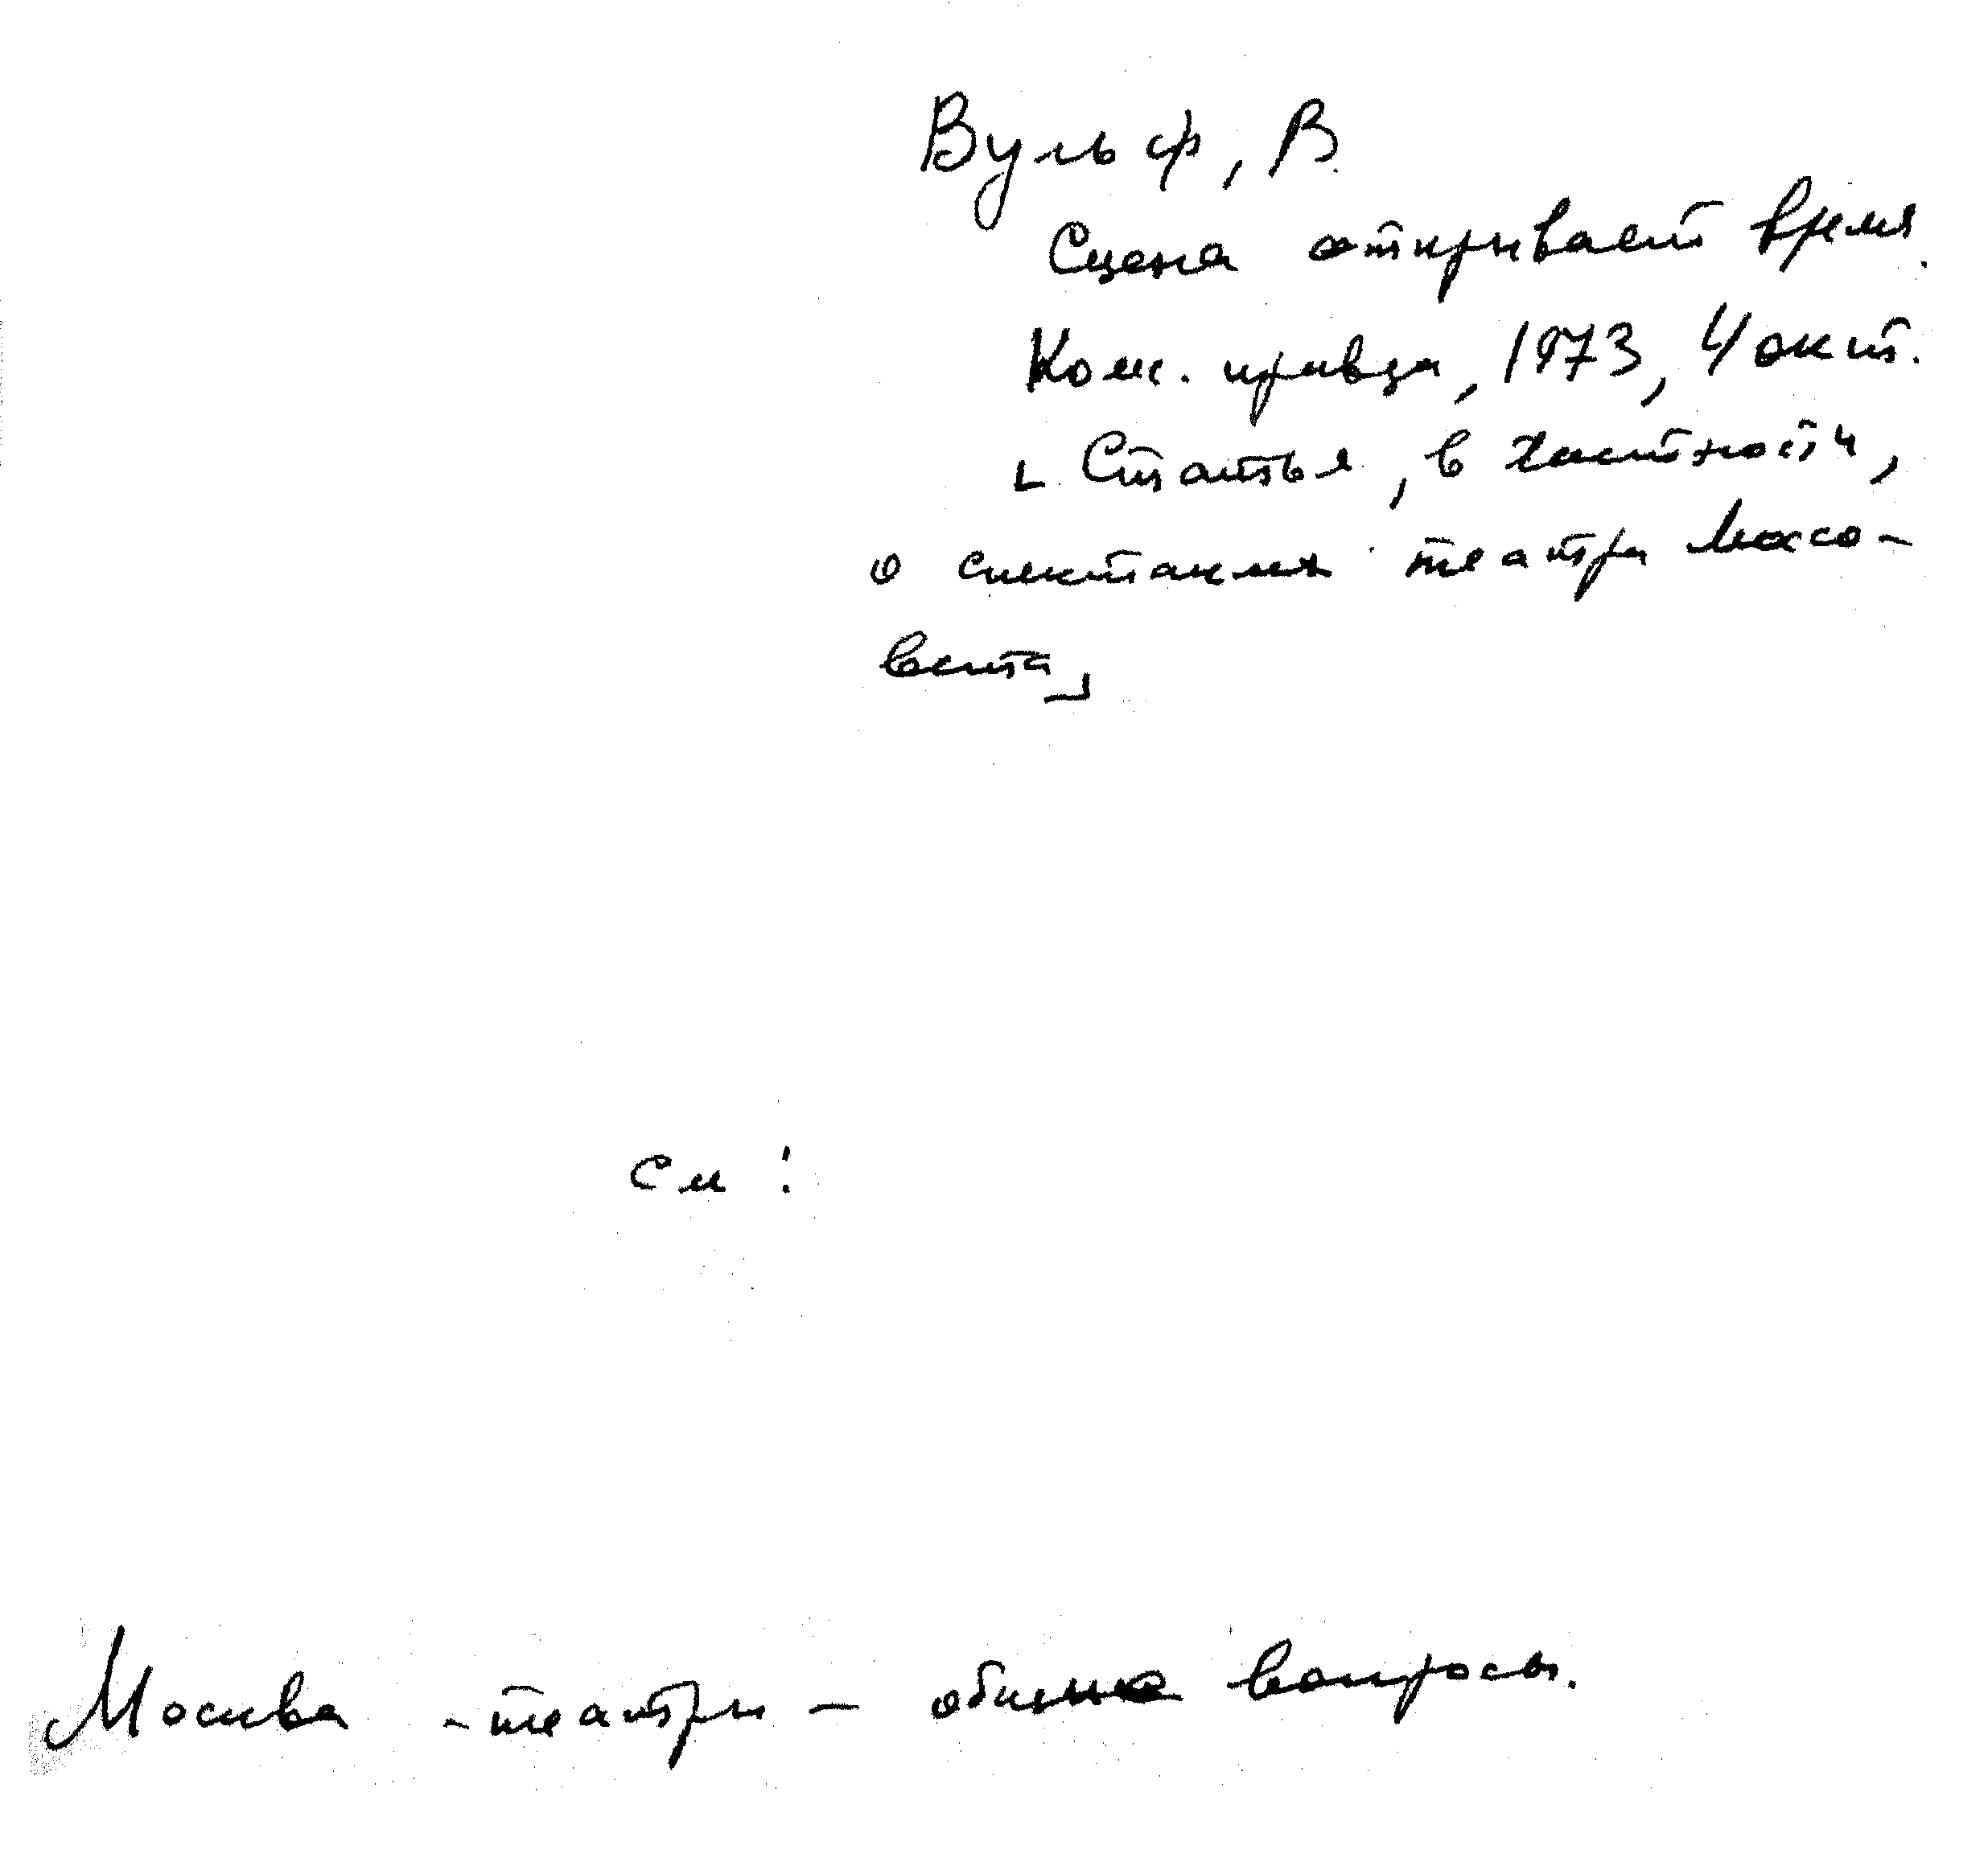 Вульф, В.
Сцена открывает время.
Ком. правда, 1973, 4 окт.
[Статья, в частности,
о спектаклях театра Моссо-
вета]
см:
Москва - театры - общие вопросы.